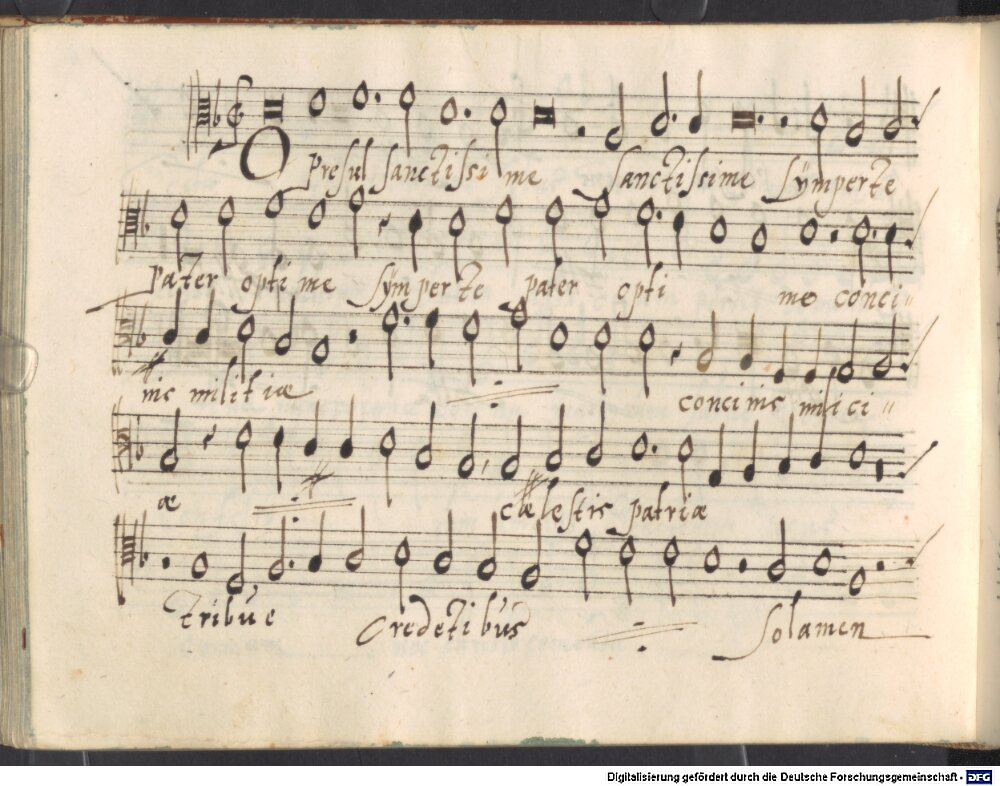 O Presul sanctissime sanctissime Symperte
pater optime Symperte pater optime conci„
nis militiæ concinis milici„
æ cælestis patriæ
tribue Credetibus Solamen
Digitalisierung gefördert durch die Deutsche Forschungsgemeinschaft - DFG